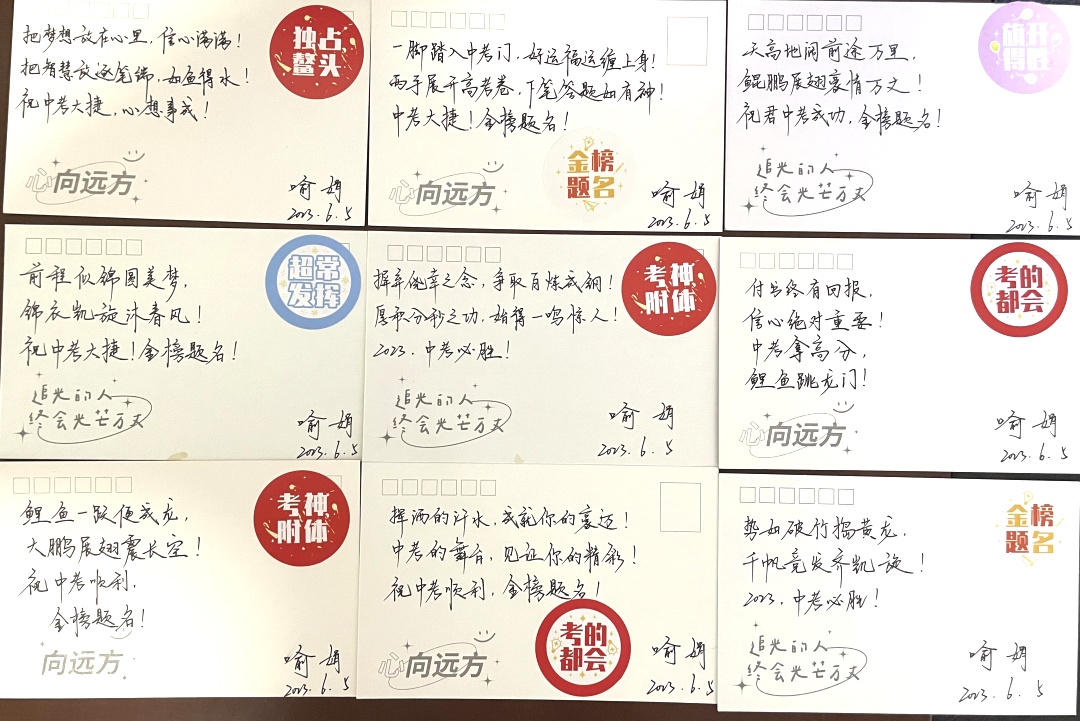 把梦想放在心里，信心满满！
把智慧放逐笔端，如鱼得水！
祝中考大捷，心想事成！
独占
鳌头
心向远方
喻娟
2023.6.5
一脚踏入中考门，好运福运缠上身！
两手展开高考卷，下笔答题如有神！
中考大捷！金榜题名！
金榜
题名
心向远方
喻娟
2023.6.5
天高地阔前途万里，
鲲鹏展翅豪情万丈！
祝君中考成功，金榜题名！
旗开
得胜
追光的人
终会光芒万丈
喻娟
2023.6.5
前程似锦圆美梦，
锦衣凯旋沐春风！
祝中考大捷！金榜题名！
超常
发挥
追光的人
终会光芒万丈
喻娟
2023.6.5
摒弃侥幸之念，争取百炼成钢！
厚积分秒之功，始得一鸣惊人！
2023，中考必胜！
考神
附体
追光的人
终会光芒万丈
喻娟
2023.6.5
付出终有回报，
信心绝对重要！
中考拿高分，
鲤鱼跳龙门！
考的
都会
心向远方
喻娟
2023.6.5
鲤鱼一跃便成龙，
大鹏展翅震长空！
祝中考顺利，
金榜题名！
考神
附体
向远方
喻娟
2023.6.5
挥洒的汗水，成就你的豪迈！
中考的舞台，见证你的精彩！
祝中考顺利，金榜题名！
考的
都会
心向远方
喻娟
2023.6.5
势如破竹捣黄龙，
千帆竞发齐凯旋！
2023，中考必胜！
金榜
题名
追光的人
终会光芒万丈
喻娟
2023.6.5